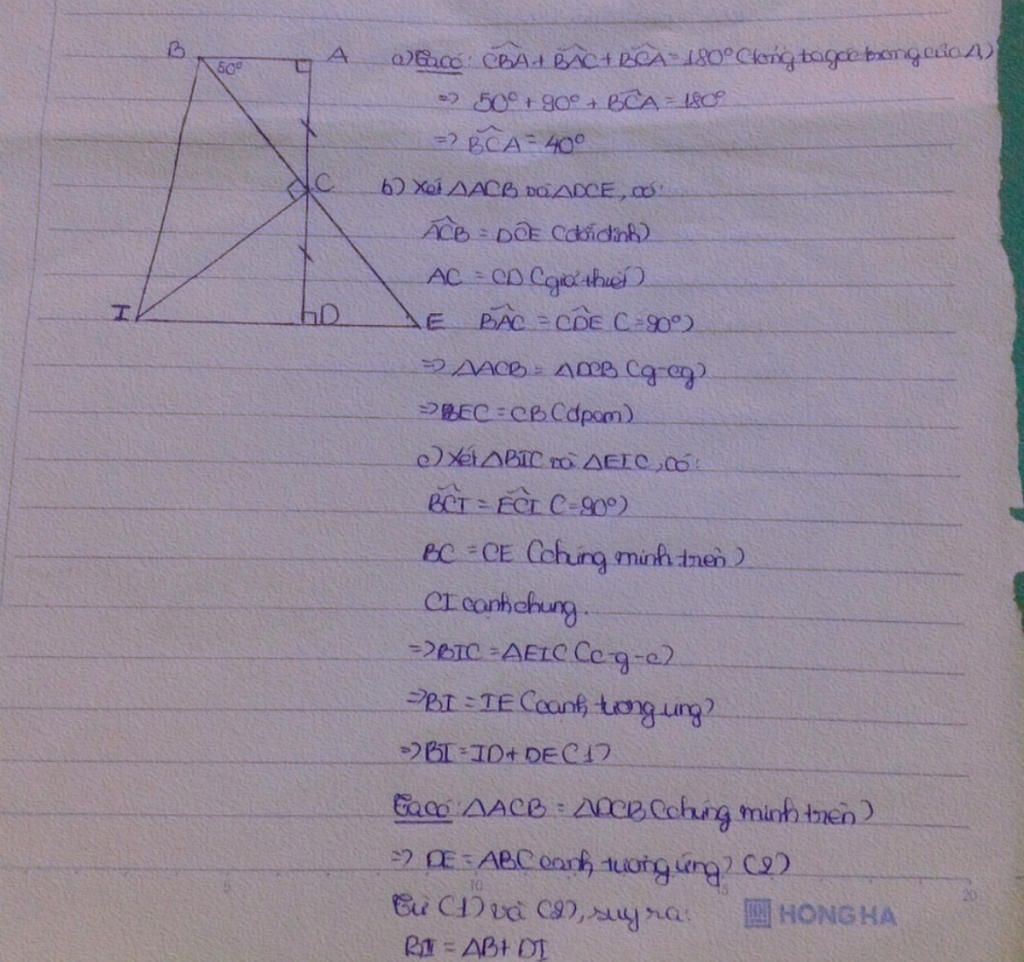 B
A
50°
C
I
D
E
a) Ta có: CBA + BAC + BCA = 180° (tổng ba góc trong của Δ)
=> 50° + 90° + BCA = 180°
=> BCA = 40°
b) Xét ΔACB và ΔDCE, có:
ACB = DCE (đối đỉnh)
AC = CD (giả thiết)
BAC = CDE (=90°)
=> ΔACB = ΔDCB (g-c-g)
=> EC = CB (đpcm)
c) Xét ΔBIC và ΔEIC, có:
BCI = ECI (=90°)
BC = CE (chứng minh trên)
CI cạnh chung.
=> BIC = ΔEIC (c-g-c)
=> BI = IE (cạnh tương ứng)
=> BI = ID + DE (1)
Ta có: ΔACB = ΔDCB (chứng minh trên)
=> DE = AB (cạnh tương ứng) (2)
Từ (1) và (2), suy ra:
BI = AB + DI
5 10 15 20
HONG HA